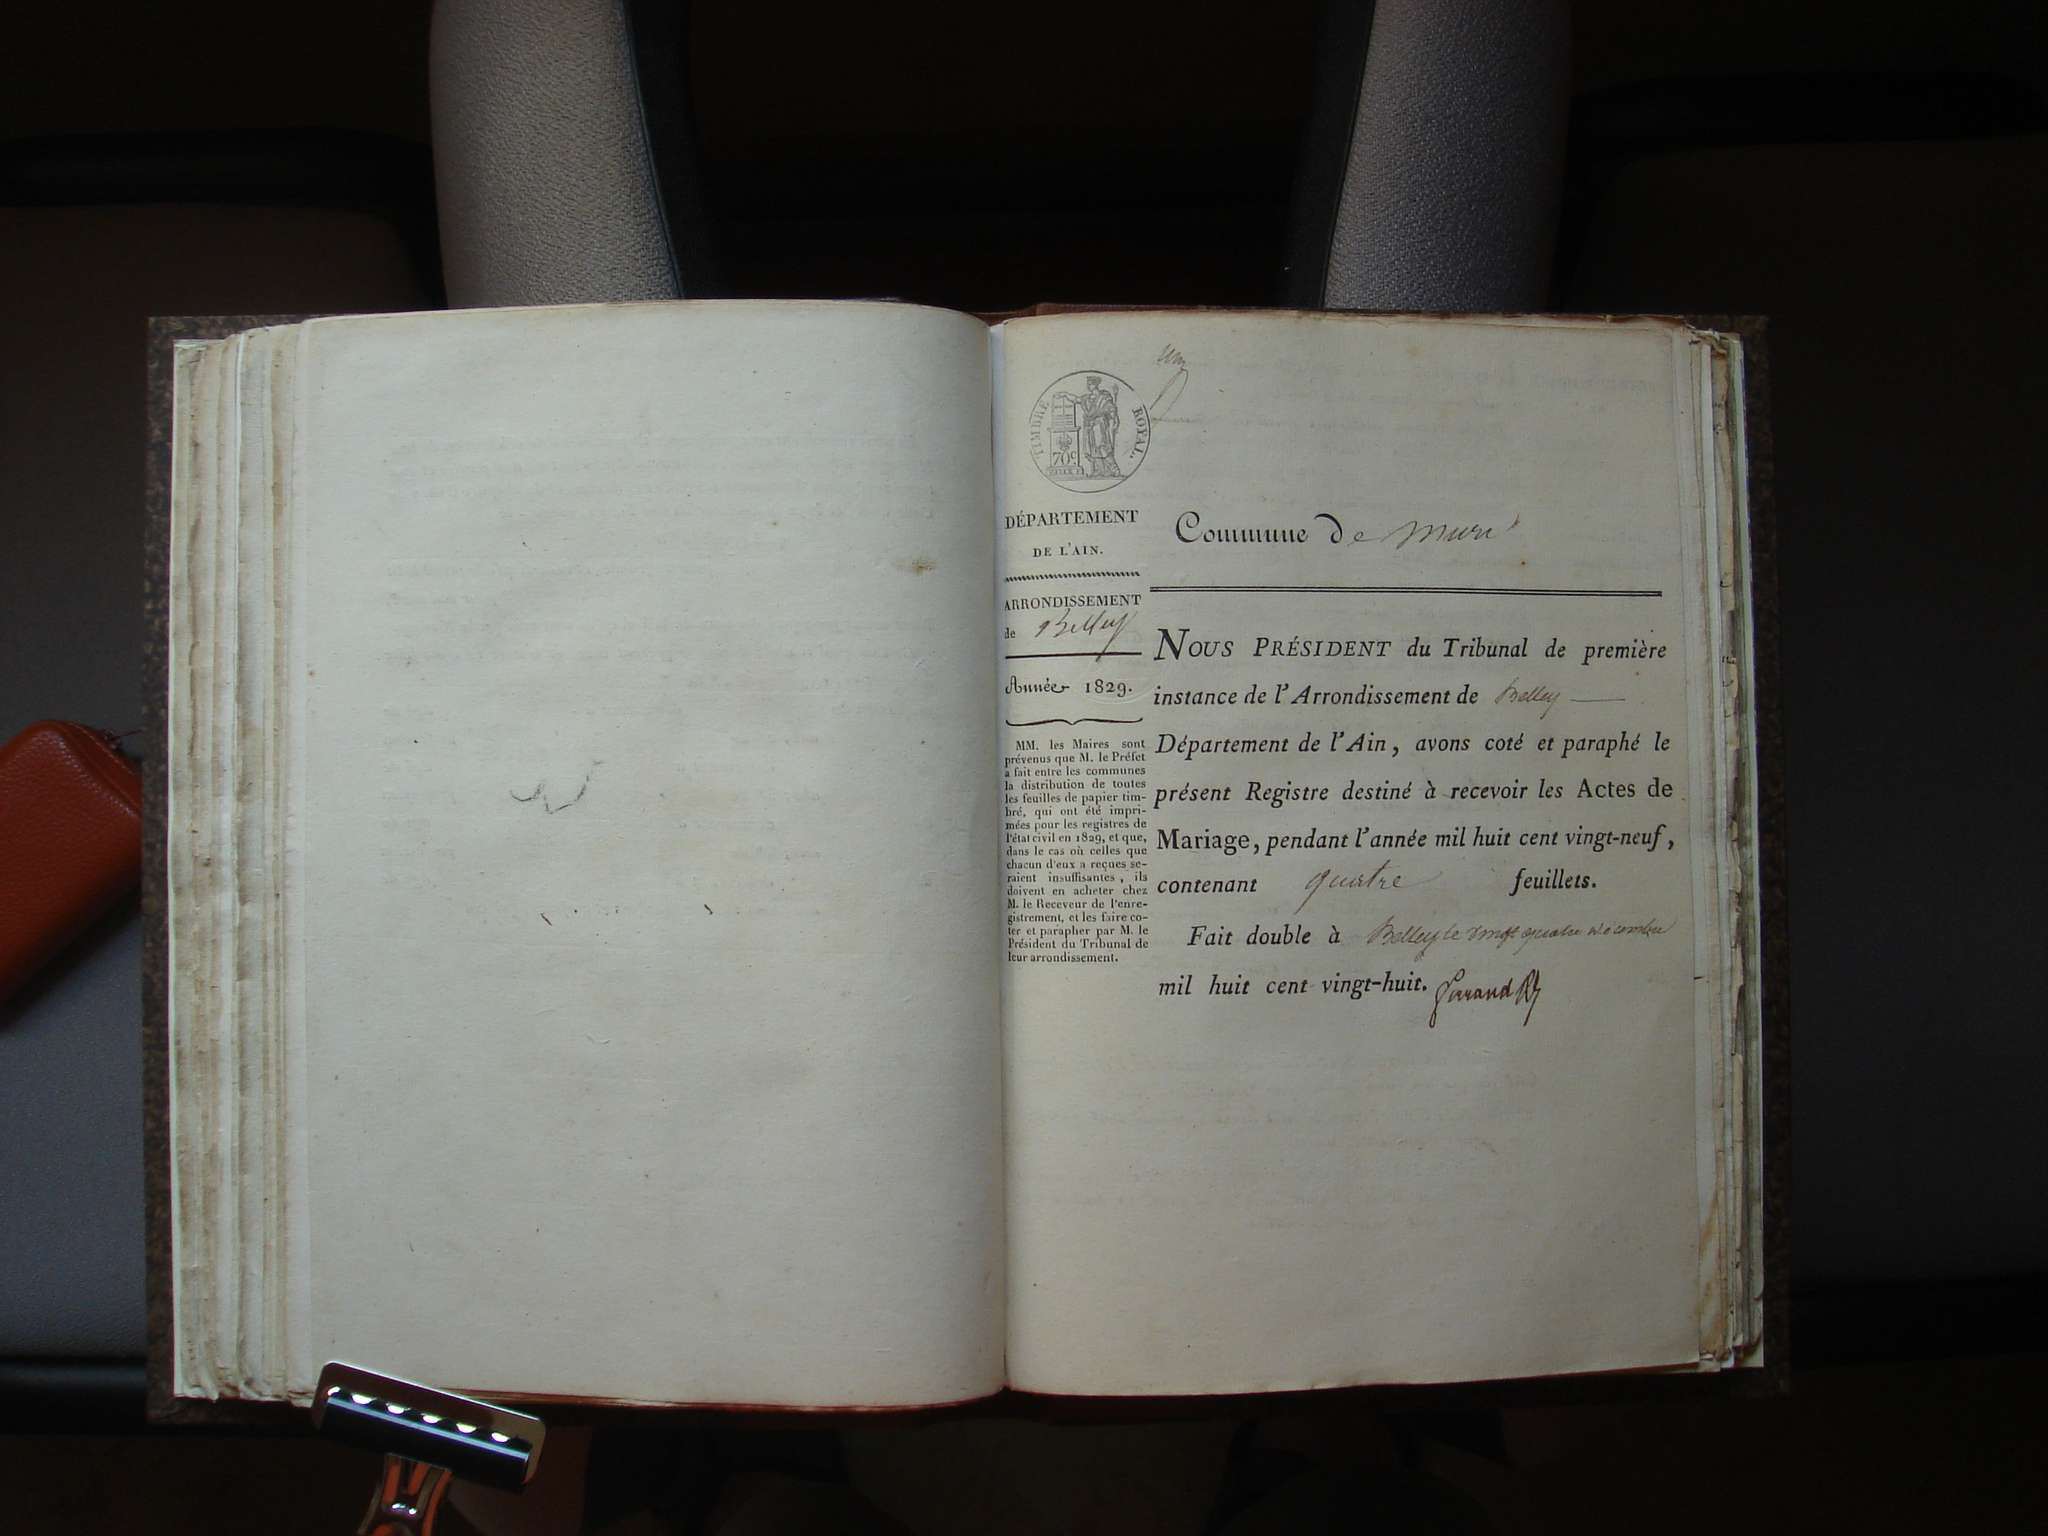 un
TIMBRE ROYAL.
70c
DÉPARTEMENT
DE L'AIN.
ARRONDISSEMENT
de Belley
Année 1829.
MM. les Maires sont
prévenus que M. le Préfet
a fait entre les communes
la distribution de toutes
les feuilles de papier tim-
bré, qui ont été impri-
mées pour les registres de
l'état civil en 1829, et que,
dans le cas où celles que
chacun d'eux a reçues se-
raient insuffisantes, ils
doivent en acheter chez
M. le Receveur de l'enre-
gistrement, et les faire co-
ter et parapher par M. le
Président du Tribunal de
leur arrondissement.
Commune de
NOUS PRÉSIDENT du Tribunal de première
instance de l'Arrondissement de Belley
Département de l'Ain, avons coté et paraphé le
présent Registre destiné à recevoir les Actes de
Mariage, pendant l'année mil huit cent vingt-neuf,
contenant quatre feuillets.
Fait double à Belley le vingt quatre décembre
mil huit cent vingt-huit.